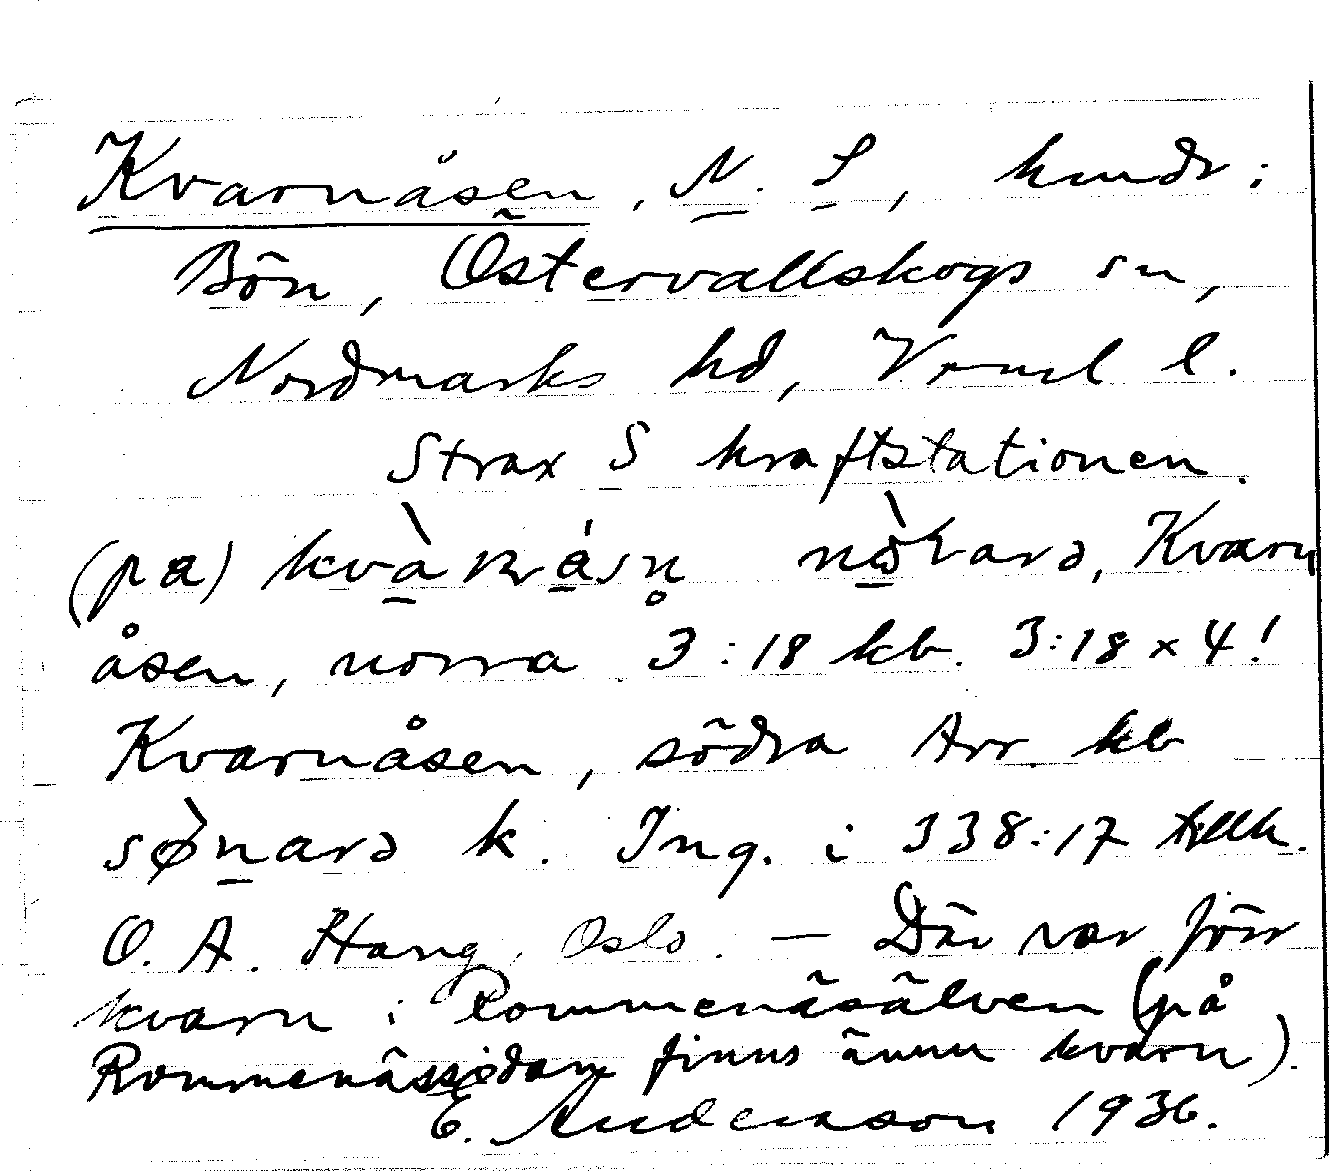 Kvarnåsen, N. S, hmdr i
Bön, Östervallskogs sn,
Nordmarks hd, Vrml l.
Strax S kraftstationen.
(pa)
åsen, norra 3:18 kb. 3:18 x 4!
Kvarnåsen, södra Arr. kb
k. Ing. i 338:17 tillh.
O. A. Haug, Oslo. — Där var förr
kvarn i Rommenäsälven (på
Rommenässidan finns ännu kvarn).
E. Andersson 1936.